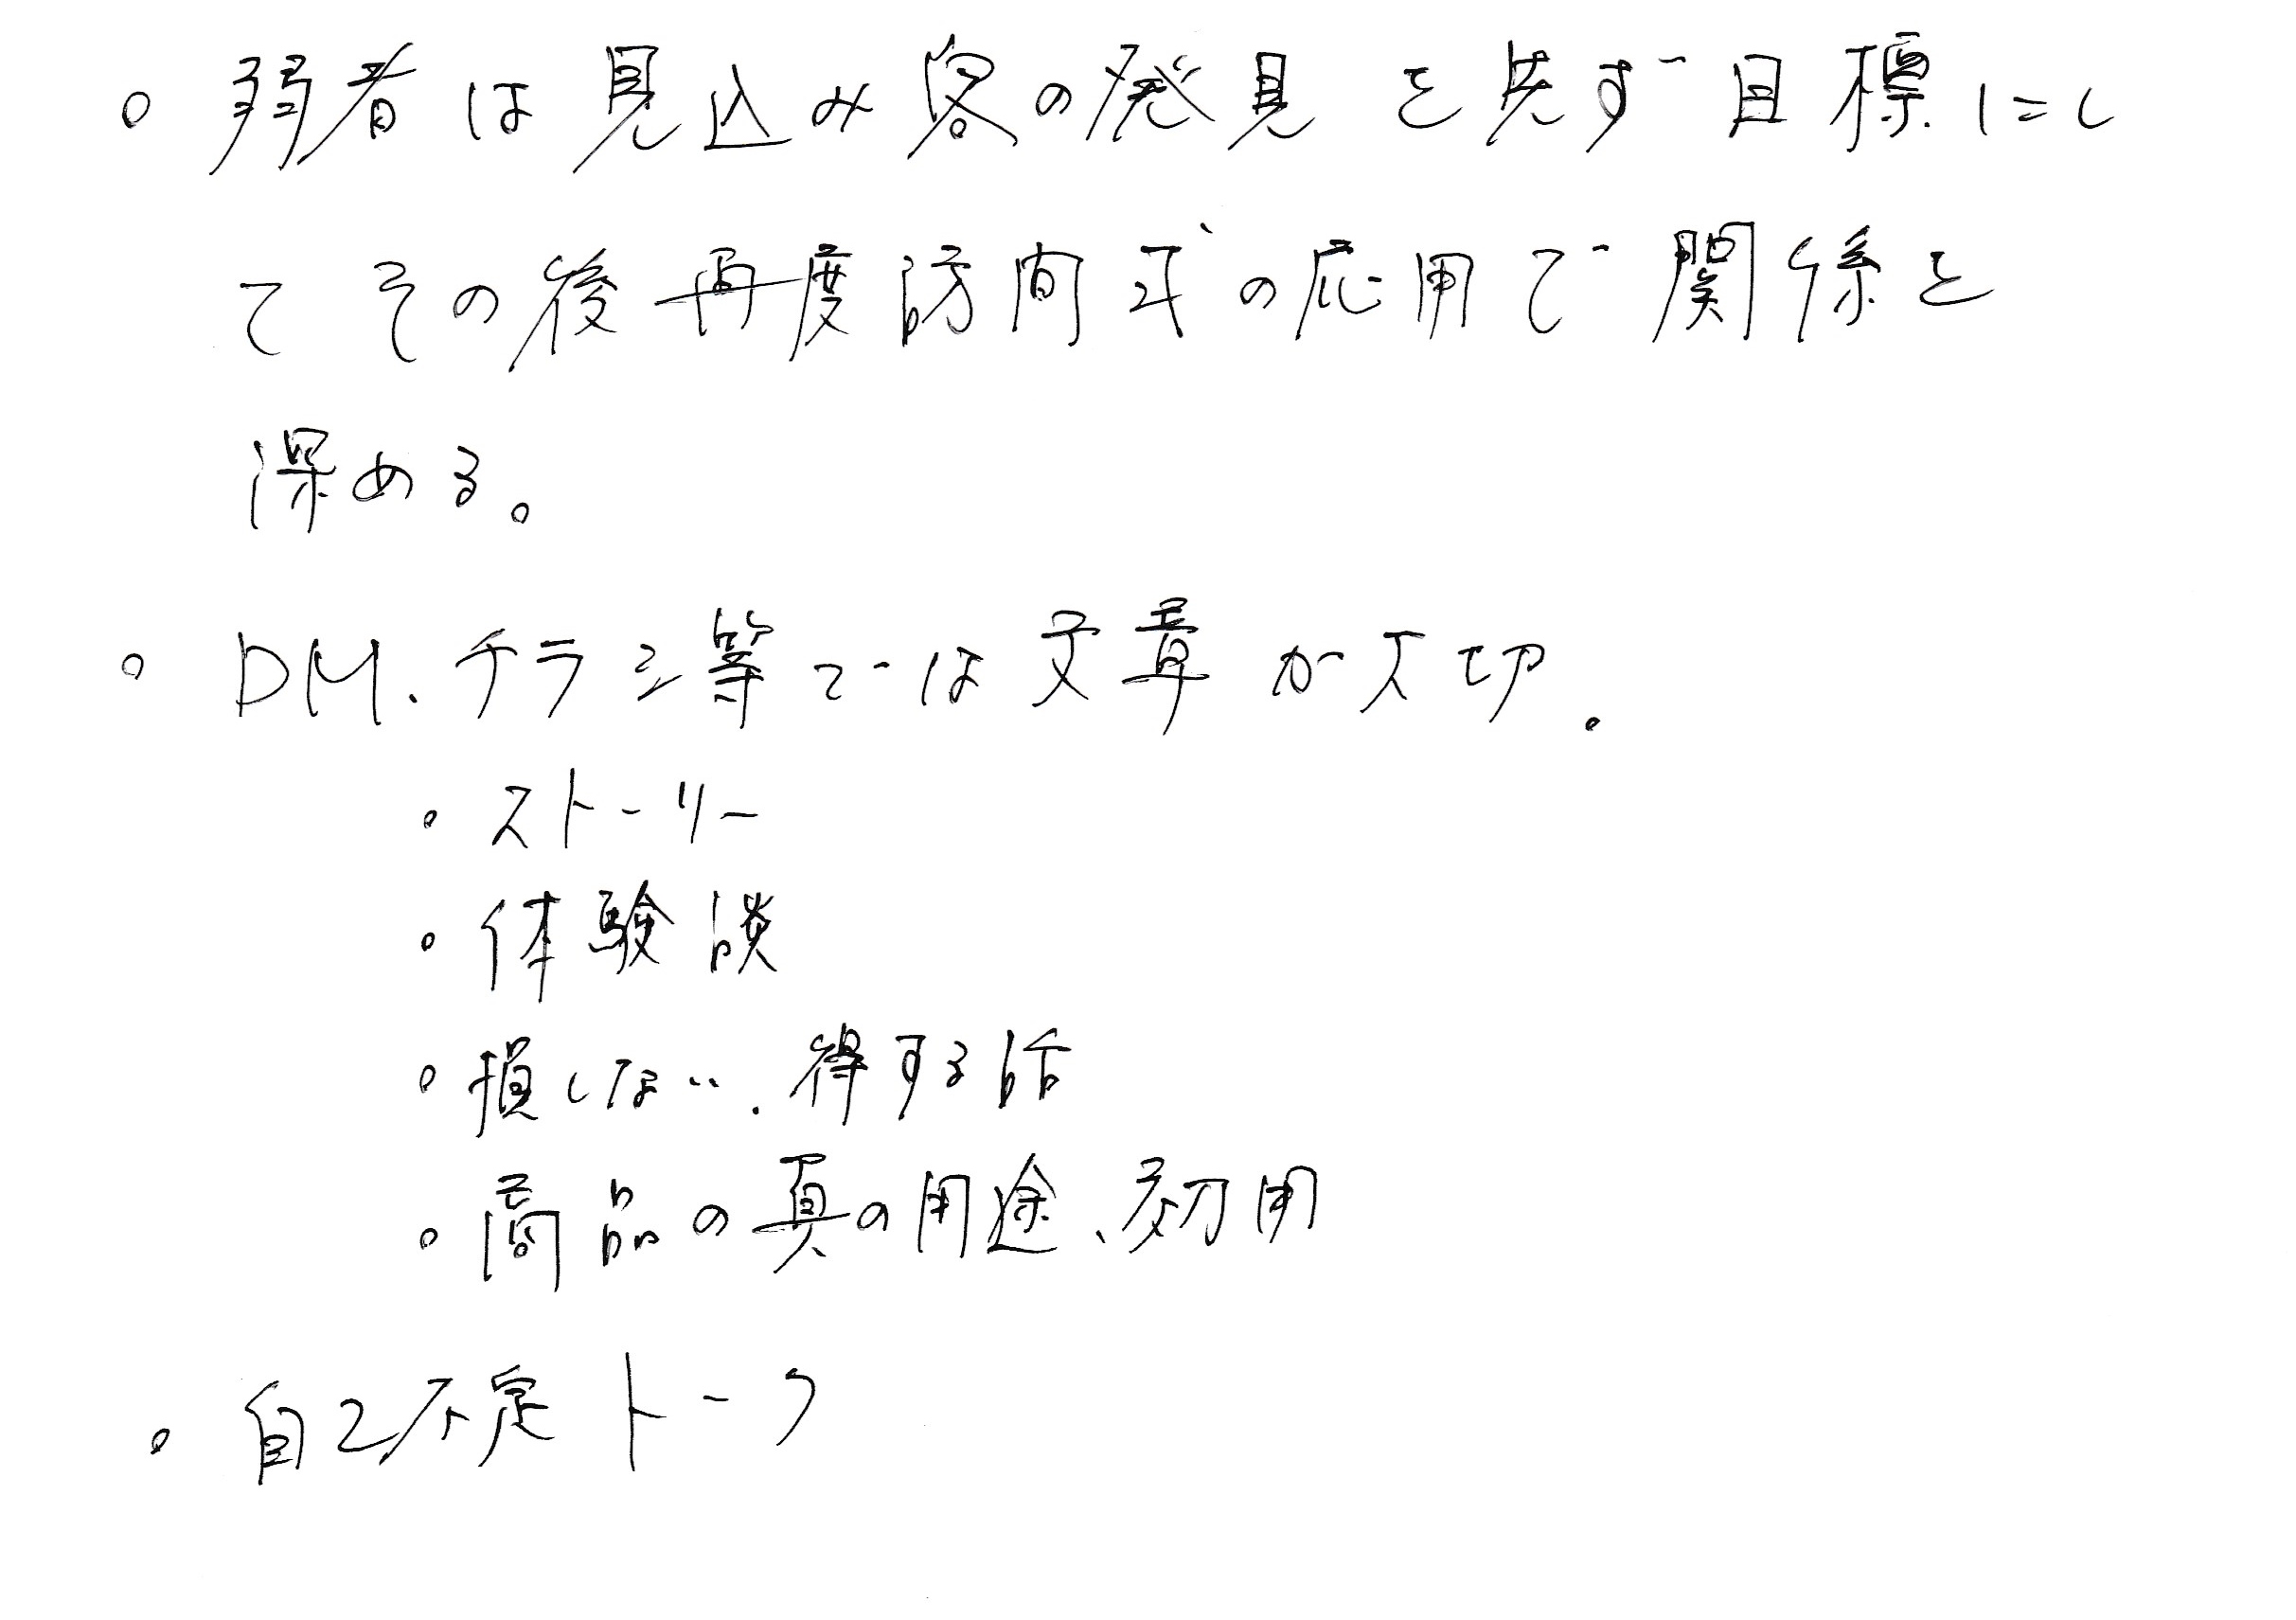 。弱者は見込み客の発見を先ず目標にし
てその後再度訪問式の応用で関係を
深める。
。DM.チラシ等では文章が大切.
。ストーリー
。体験談
。損しない.得する話
。商品の真の用途、効用
。自己不定トーク